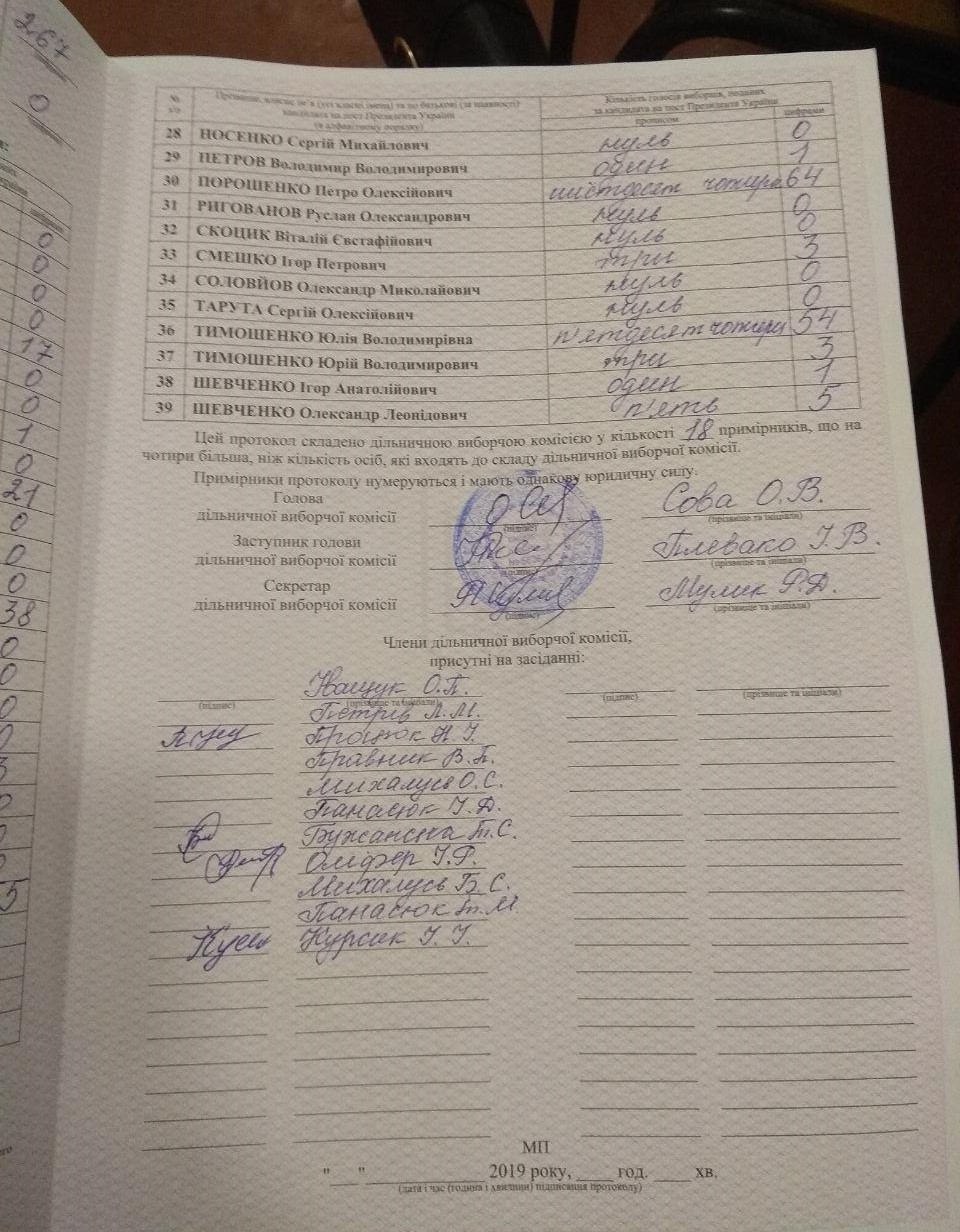 267
0
№ з/п
Прізвище, власне ім’я (усі власні імена) та по батькові (за наявності) кандидата на пост Президента України (в алфавітному порядку)
Кількість голосів виборців, поданих за кандидата на пост Президента України
прописом цифрами
28 НОСЕНКО Сергій Михайлович нуль 0
29 ПЕТРОВ Володимир Володимирович один 1
30 ПОРОШЕНКО Петро Олексійович шістдесят чотири 64
31 РИГОВАНОВ Руслан Олександрович нуль 0
32 СКОЦИК Віталій Євстафійович нуль 0
33 СМЕШКО Ігор Петрович три 3
34 СОЛОВЙОВ Олександр Миколайович нуль 0
35 ТАРУТА Сергій Олексійович нуль 0
36 ТИМОШЕНКО Юлія Володимирівна п'ятдесят чотири 54
37 ТИМОШЕНКО Юрій Володимирович три 3
38 ШЕВЧЕНКО Ігор Анатолійович один 1
39 ШЕВЧЕНКО Олександр Леонідович п'ять 5
0
0
0
0
17
0
0
1
0
21
0
0
0
38
0
0
0
Цей протокол складено дільничною виборчою комісією у кількості 18 примірників, що на
чотири більша, ніж кількість осіб, які входять до складу дільничної виборчої комісії.
Примірники протоколу нумеруються і мають однакову юридичну силу.
Голова
дільничної виборчої комісії Сова О.В.
(підпис) (прізвище та ініціали)
Заступник голови
дільничної виборчої комісії Плевако І.В.
(підпис) (прізвище та ініціали)
Секретар
дільничної виборчої комісії Мулик Р.Д.
(підпис) (прізвище та ініціали)
Члени дільничної виборчої комісії,
присутні на засіданні:
Іващук О.П.
(підпис) (прізвище та ініціали) (підпис) (прізвище та ініціали)
Петрів Л.М.
Процюк Н.І.
Правник В.П.
Михалусь О.С.
Панасюк І.Д.
Бужанська Т.С.
Оліфер І.Р.
Михалусь Б.С.
Панасюк Т.М.
Курсик І.І.
МП
"___" ____________ 2019 року, ____ год. ____ хв.
(дата і час (година і хвилини) підписання протоколу)